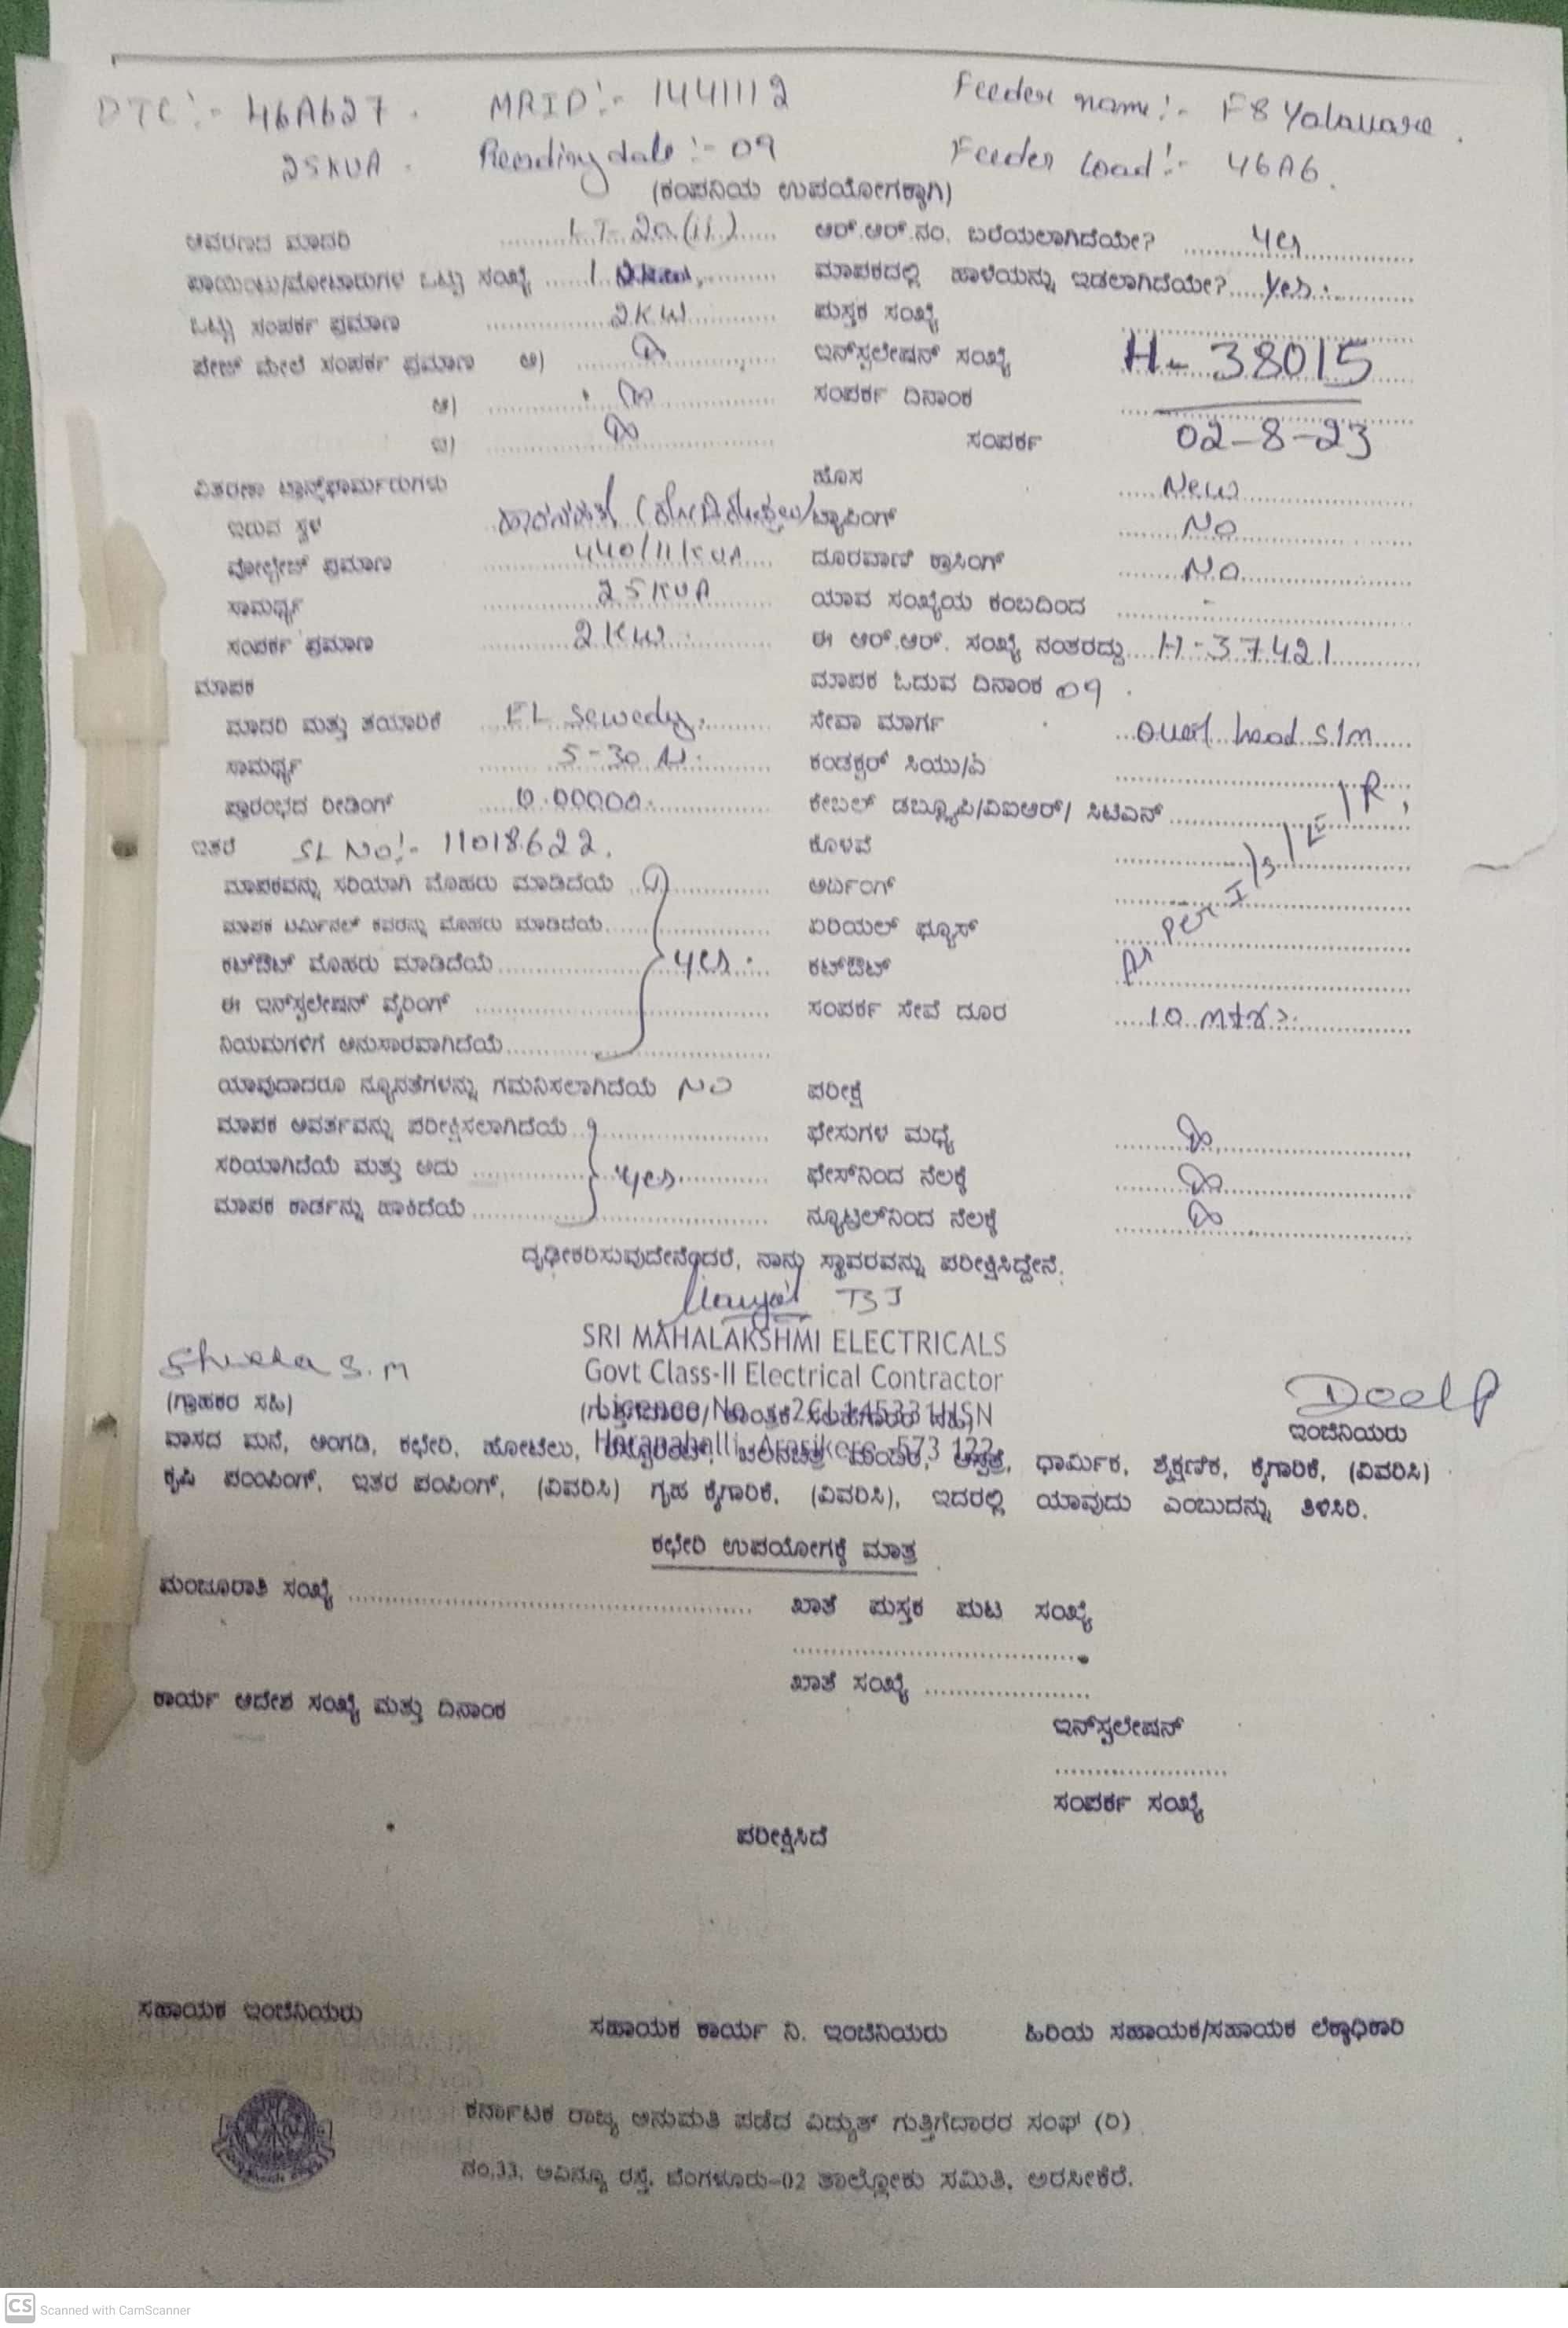 DTC:- 46A627. MRID:- 1441112 Feeder name:- F8 Yalavare.
25KVA. Reading date:- 09 Feeder Load:- 46A6.
(ಕಂಪನಿಯ ಉಪಯೋಗಕ್ಕಾಗಿ)
ಆವರಣದ ಮಾದರಿ LT-2a(ii) ಆರ್.ಆರ್.ನಂ. ಬರೆಯಲಾಗಿದೆಯೇ? yes
ಪಾಯಿಂಟು/ಮೋಟಾರುಗಳ ಒಟ್ಟು ಸಂಖ್ಯೆ 1 ಮಾಪಕದಲ್ಲಿ ಹಾಳೆಯನ್ನು ಇಡಲಾಗಿದೆಯೇ? yes.
ಒಟ್ಟು ಸಂಪರ್ಕ ಪ್ರಮಾಣ 2KW ಪುಸ್ತಕ ಸಂಖ್ಯೆ
ಪೇಜ್ ಮೇಲೆ ಸಂಪರ್ಕ ಪ್ರಮಾಣ ಅ) ಇನ್‌ಸ್ಟಲೇಷನ್ ಸಂಖ್ಯೆ H-38015
ಆ) ಸಂಪರ್ಕ ದಿನಾಂಕ
ಇ) ಸಂಪರ್ಕ 02-8-23
ವಿತರಣಾ ಟ್ರಾನ್ಸ್‌ಫಾರ್ಮರುಗಳು ಹೊಸ New
ಇರುವ ಸ್ಥಳ ಟ್ಯಾಪಿಂಗ್ No
ವೋಲ್ಟೇಜ್ ಪ್ರಮಾಣ 440/11KVA ದೂರವಾಣಿ ಕ್ರಾಸಿಂಗ್ No
ಸಾಮರ್ಥ್ಯ 25KVA ಯಾವ ಸಂಖ್ಯೆಯ ಕಂಬದಿಂದ -
ಸಂಪರ್ಕ ಪ್ರಮಾಣ 2KW. ಈ ಆರ್.ಆರ್. ಸಂಖ್ಯೆ ನಂತರದ್ದು H-37421
ಮಾಪಕ ಮಾಪಕ ಓದುವ ದಿನಾಂಕ 09.
ಮಾದರಿ ಮತ್ತು ತಯಾರಿಕೆ EL Sewedy. ಸೇವಾ ಮಾರ್ಗ over head S/m
ಸಾಮರ್ಥ್ಯ 5-30 A. ಕಂಡಕ್ಟರ್ ಸಿಯು/ಎ
ಪ್ರಾರಂಭದ ರೀಡಿಂಗ್ 0.00000. ಕೇಬಲ್ ಡಬ್ಲ್ಯೂಪಿ/ವಿಐಆರ್/ ಸಿಟಿಎಸ್
ಇತರೆ SL No:- 11018622. ಕೊಳವೆ
ಮಾಪಕವನ್ನು ಸರಿಯಾಗಿ ಮೊಹರು ಮಾಡಿದೆಯೆ ಅರ್ಥಿಂಗ್ As per I/S/E/R,
ಮಾಪಕ ಟರ್ಮಿನಲ್ ಕವರನ್ನು ಮೊಹರು ಮಾಡಿದೆಯೆ ಏರಿಯಲ್ ಫ್ಯೂಸ್
ಕಟ್‌ಔಟ್ ಮೊಹರು ಮಾಡಿದೆಯೆ yes. ಕಟ್‌ಔಟ್
ಈ ಇನ್‌ಸ್ಟಲೇಷನ್ ವೈರಿಂಗ್ ಸಂಪರ್ಕ ಸೇವೆ ದೂರ 10 mtrs.
ನಿಯಮಗಳಿಗೆ ಅನುಸಾರವಾಗಿದೆಯೆ
ಯಾವುದಾದರೂ ನ್ಯೂನತೆಗಳನ್ನು ಗಮನಿಸಲಾಗಿದೆಯೆ NO ಪರೀಕ್ಷೆ
ಮಾಪಕ ಆವರ್ತವನ್ನು ಪರೀಕ್ಷಿಸಲಾಗಿದೆಯೆ ಫೇಸುಗಳ ಮಧ್ಯೆ
ಸರಿಯಾಗಿದೆಯೆ ಮತ್ತು ಅದು yes ಫೇಸ್‌ನಿಂದ ನೆಲಕ್ಕೆ
ಮಾಪಕ ಕಾರ್ಡನ್ನು ಹಾಕಿದೆಯೆ ನ್ಯೂಟ್ರಲ್‌ನಿಂದ ನೆಲಕ್ಕೆ
ದೃಢೀಕರಿಸುವುದೇನೆಂದರೆ, ನಾನು ಸ್ಥಾವರವನ್ನು ಪರೀಕ್ಷಿಸಿದ್ದೇನೆ.
SRI MAHALAKSHMI ELECTRICALS
Govt Class-II Electrical Contractor
Shiela S.M
(ಗ್ರಾಹಕರ ಸಹಿ) Licence No. HSN ಇಂಜಿನಿಯರು
Haranahalli, Arasikere-573 122
ವಾಸದ ಮನೆ, ಅಂಗಡಿ, ಕಛೇರಿ, ಹೋಟೆಲು, ಮಂದಿರ, ಆಸ್ಪತ್ರೆ, ಧಾರ್ಮಿಕ, ಶೈಕ್ಷಣಿಕ, ಕೈಗಾರಿಕೆ, (ವಿವರಿಸಿ)
ಕೃಷಿ ಪಂಪಿಂಗ್, ಇತರ ಪಂಪಿಂಗ್, (ವಿವರಿಸಿ) ಗೃಹ ಕೈಗಾರಿಕೆ, (ವಿವರಿಸಿ), ಇದರಲ್ಲಿ ಯಾವುದು ಎಂಬುದನ್ನು ತಿಳಿಸಿರಿ.
ಕಛೇರಿ ಉಪಯೋಗಕ್ಕೆ ಮಾತ್ರ
ಮಂಜೂರಾತಿ ಸಂಖ್ಯೆ ಖಾತೆ ಪುಸ್ತಕ ಪುಟ ಸಂಖ್ಯೆ
ಖಾತೆ ಸಂಖ್ಯೆ
ಕಾರ್ಯ ಆದೇಶ ಸಂಖ್ಯೆ ಮತ್ತು ದಿನಾಂಕ
ಇನ್‌ಸ್ಟಲೇಷನ್
ಸಂಪರ್ಕ ಸಂಖ್ಯೆ
ಪರೀಕ್ಷಿಸಿದೆ
ಸಹಾಯಕ ಇಂಜಿನಿಯರು ಸಹಾಯಕ ಕಾರ್ಯ ನಿ. ಇಂಜಿನಿಯರು ಹಿರಿಯ ಸಹಾಯಕ/ಸಹಾಯಕ ಲೆಕ್ಕಾಧಿಕಾರಿ
ಕರ್ನಾಟಕ ರಾಜ್ಯ ಅನುಮತಿ ಪಡೆದ ವಿದ್ಯುತ್ ಗುತ್ತಿಗೆದಾರರ ಸಂಘ (ರಿ)
ನಂ.33, ಅವಿನ್ಯೂ ರಸ್ತೆ, ಬೆಂಗಳೂರು-02 ತಾಲ್ಲೋಕು ಸಮಿತಿ, ಅರಸೀಕೆರೆ.
CS Scanned with CamScanner